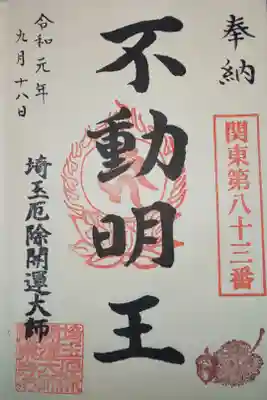 奉納
関東第八十三番
不動明王
令和元年
九月十八日
埼玉厄除開運大師